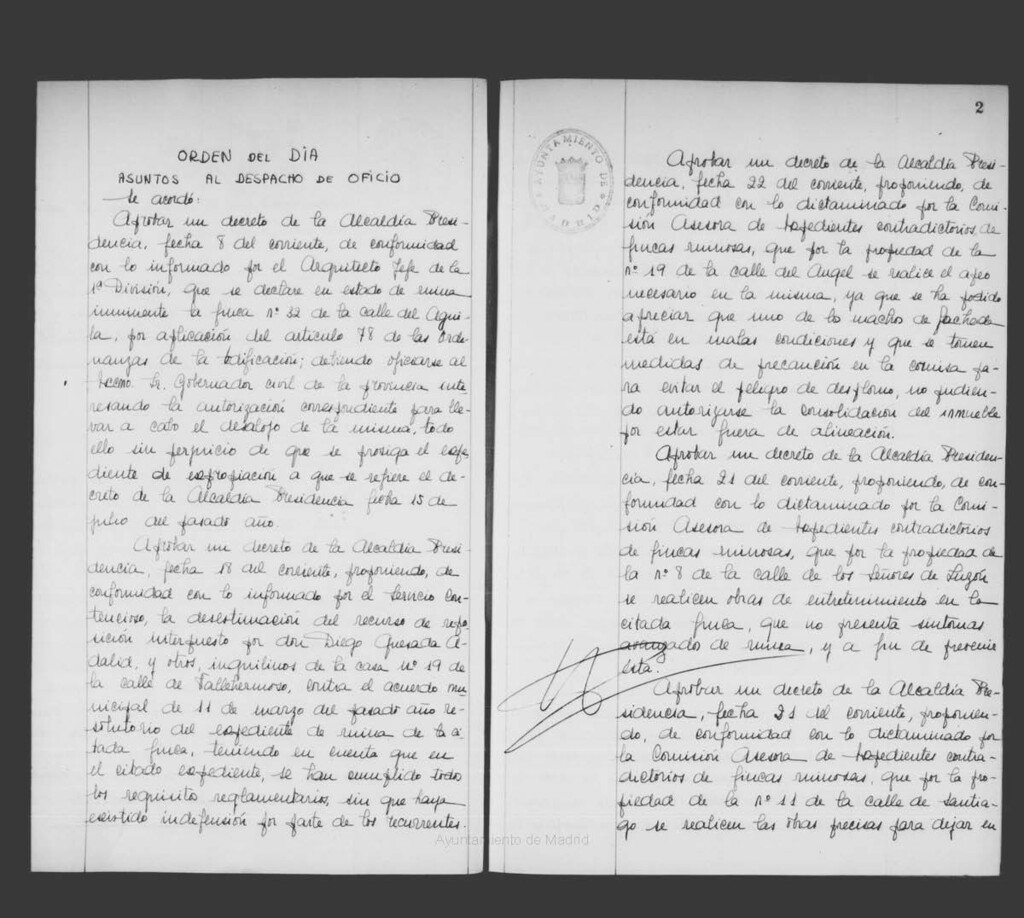 ORDEN DEL DIA
ASUNTOS AL DESPACHO DE OFICIO
Se acordó:
Aprobar un decreto de la Alcaldía Presi-
dencia, fecha 8 del corriente, de conformidad
con lo informado por el Arquitecto Jefe de la
1ª División, que se declare en estado de ruina
inminente la finca nº 32 de la calle del Agui-
la, por aplicación del artículo 78 de las Orde-
nanzas de la Edificación; debiendo oficiarse al
Excmo. Sr. Gobernador civil de la provincia inte-
resando la autorización correspondiente para lle-
var a cabo el desalojo de la misma, todo
ello sin perjuicio de que se prosiga el expe-
diente de expropiación a que se refiere el de-
creto de la Alcaldía Presidencia fecha 15 de
julio del pasado año.
Aprobar un decreto de la Alcaldía Presi-
dencia, fecha 18 del corriente, proponiendo, de
conformidad con lo informado por el Servicio Con-
tencioso, la desestimación del recurso de repo-
sición interpuesto por don Diego Quesada A-
dalid, y otros, inquilinos de la casa nº 19 de
la calle de Vallehermoso, contra el acuerdo mu-
nicipal de 11 de marzo del pasado año re-
solutorio del expediente de ruina de la ci-
tada finca, teniendo en cuenta que en
el citado expediente, se han cumplido todos
los requisitos reglamentarios, sin que haya
existido indefensión por parte de los recurrentes.
2
AYUNTAMIENTO DE MADRID
Aprobar un decreto de la Alcaldía Presi-
dencia, fecha 22 del corriente, proponiendo, de
conformidad con lo dictaminado por la Comi-
sión Asesora de Expedientes contradictorios de
fincas ruinosas, que por la propiedad de la
nº 19 de la calle del Angel se realice el apeo
necesario en la misma, ya que se ha podido
apreciar que uno de lo machos de fachada
está en malas condiciones y que se tomen
medidas de precaución en la cornisa pa-
ra evitar el peligro de desplomo, no pudien-
do autorizarse la consolidación del inmueble
por estar fuera de alineación.
Aprobar un decreto de la Alcaldía Presiden-
cia, fecha 21 del corriente, proponiendo, de con-
formidad con lo dictaminado por la Comi-
sión Asesora de Expedientes contradictorios
de fincas ruinosas, que por la propiedad de
la nº 8 de la calle de los Señores de Luzón
se realicen obras de entretenimiento en la
citada finca, que no presenta síntomas
avanzados de ruina, y a fin de prevenir
ésta.
Aprobar un decreto de la Alcaldía Pre-
sidencia, fecha 21 del corriente, proponien-
do, de conformidad con lo dictaminado por
la Comisión Asesora de Expedientes contra-
dictorios de fincas ruinosas, que por la pro-
piedad de la nº 11 de la calle de Santia-
go se realicen las obras precisas para dejar en
Ayuntamiento de Madrid